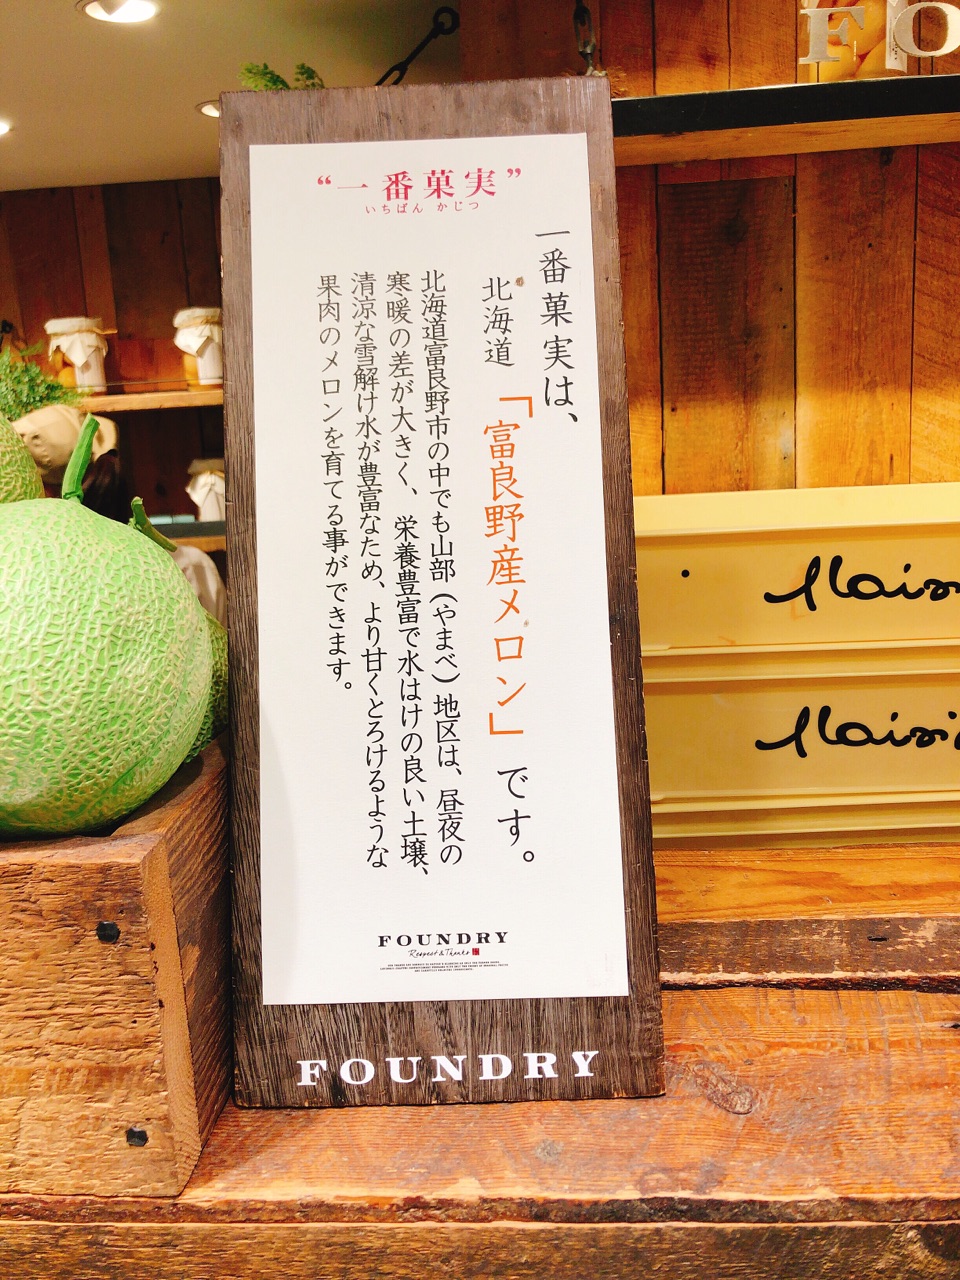 “一番菓実”
いちばん かじつ
一番菓実は、
北海道「富良野産メロン」です。
北海道富良野市の中でも山部(やまべ)地区は、昼夜の
寒暖の差が大きく、栄養豊富で水はけの良い土壌、
清涼な雪解け水が豊富なため、より甘くとろけるような
果肉のメロンを育てる事ができます。
FOUNDRY
Respect & Thanks
FOUNDRY
FO